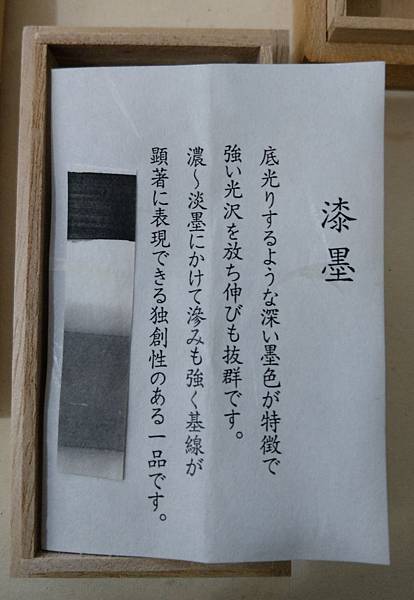 漆墨
底光りするような深い墨色が特徴で
強い光沢を放ち伸びも抜群です。
濃〜淡墨にかけて滲みも強く基線が
顕著に表現できる独創性のある一品です。